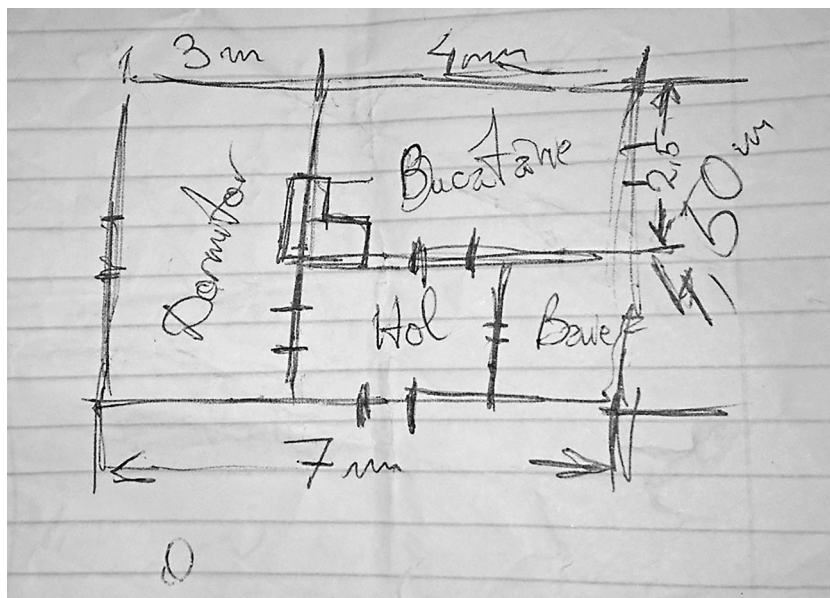 3m 4m
Bucatărie
2,5
4,50m
Dormitor
Hol Baie
7m